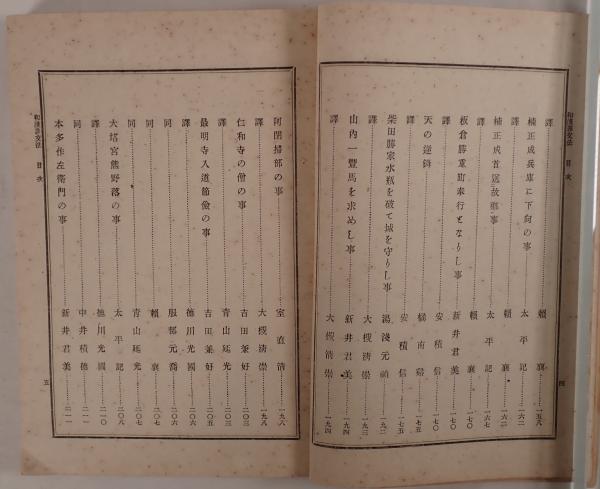 和漢譯文法 目次
譯 頼襄 一五八
楠正成兵庫に下向の事 太平記 一六二
譯 頼襄 一六二
楠正成首送故鄕事 太平記 一六七
譯 頼襄 一七〇
板倉勝重町奉行となりし事 新井君美 一七〇
譯 安積信 一七五
天の逆鉾 橘南谿 一七五
譯 安積信 一七五
柴田勝家水瓶を破て城を守りし事 湯淺元禎 一九二
譯 大槻淸崇 一九三
山內一豐馬を求めし事 新井君美 一九四
譯 大槻淸崇 一九四
四
阿閉掃部の事 室直淸 一九八
譯 大槻淸崇 一九八
仁和寺の僧の事 吉田兼好 二〇三
譯 靑山延光 二〇三
最明寺入道節儉の事 吉田兼好 二〇五
譯 德川光圀 二〇六
同 服部元喬 二〇六
同 靑山延光 二〇七
同 頼襄 二〇七
大塔宮熊野落の事 太平記 二〇八
譯 德川光圀 二一〇
同 中井積德 二一一
本多作左衞門の事 新井君美 二一一
和漢譯文法 目次
五